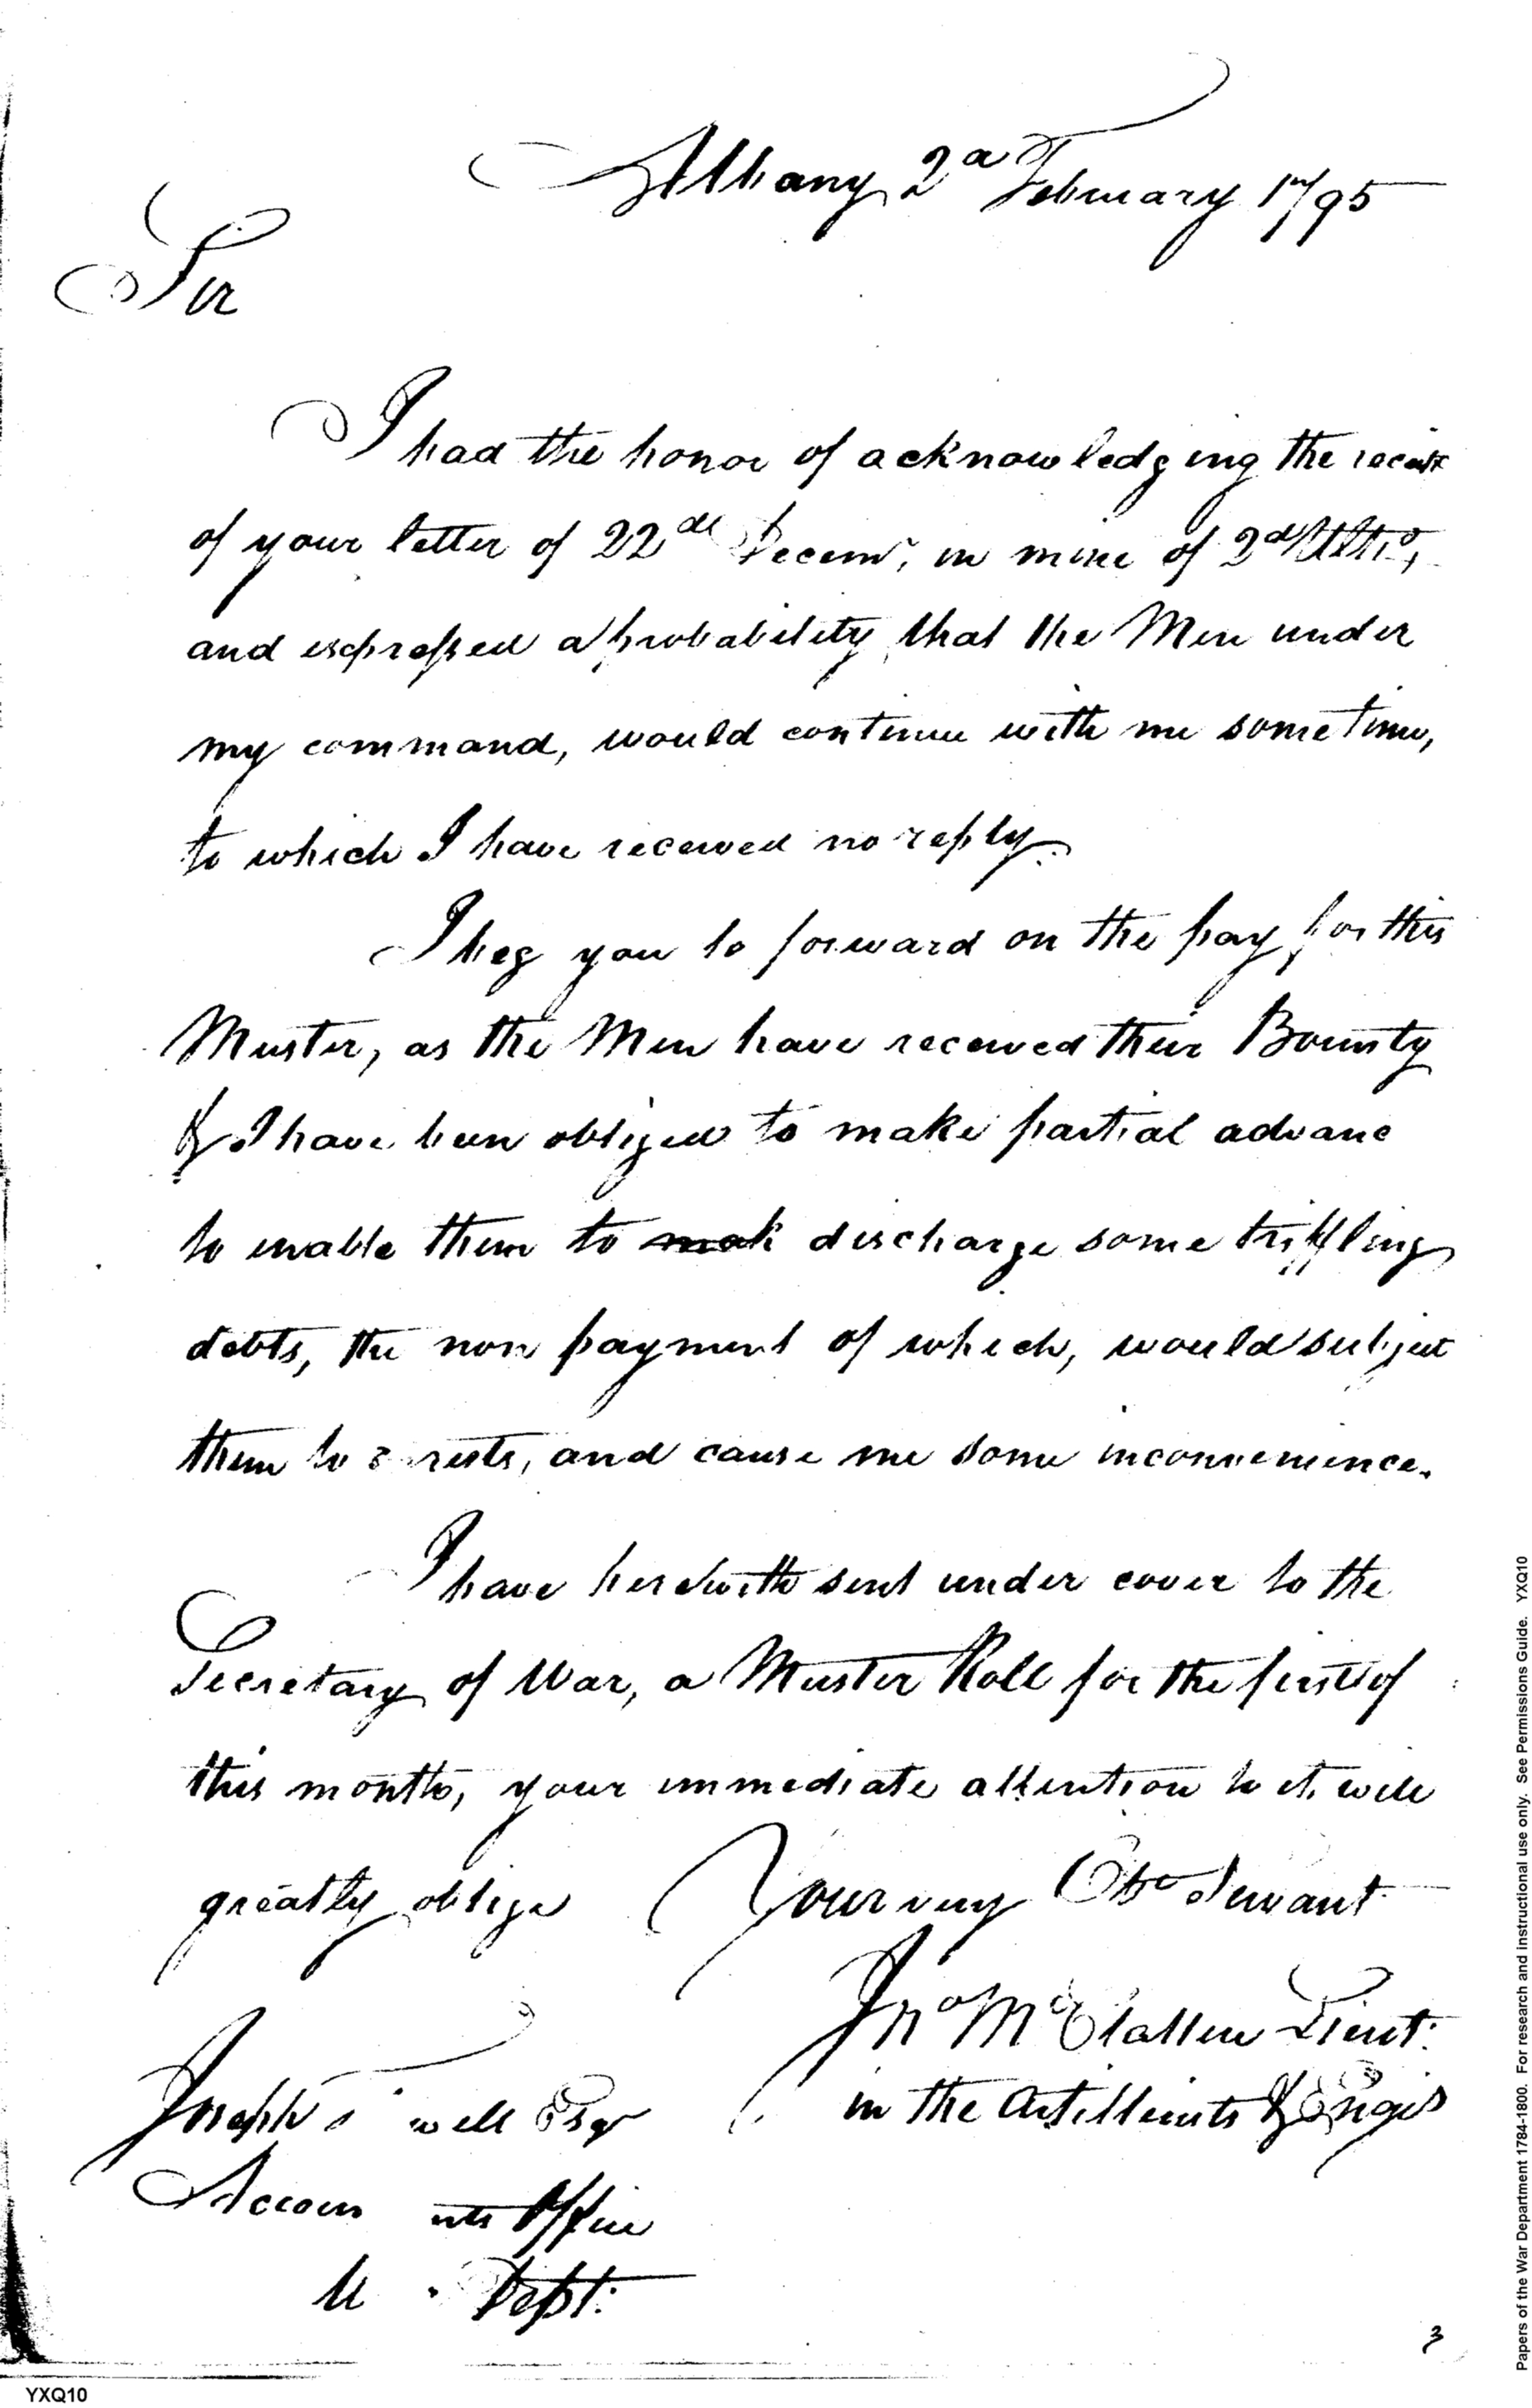 Albany 2d February 1795
Sir
I had the honor of acknowledging the receipt
of your letter of 22de Decemr, in mine of 2d Ultio,
and expressed a probability that the Men under
my command, would continue with me some time,
to which I have received no reply.
I beg you to forward on the pay for this
Muster, as the Men have received their Bounty
& I have been obliged to make partial advanc
to enable them to mak discharge some triffling
debts, the non payment of which, would subject
them to rests, and cause me some inconvenience.
I have herewith sent under cover to the
Secretary of War, a Muster Roll for the first of
this month, your immediate attention to it, will
greatly oblige Your very Obt Servant
Jno McClallen Lieut:
in the Artillerists & Engrs
Joseph well Esqr
Accoun nts Office
W Dept:
3
YXQ10
Papers of the War Department 1784-1800. For research and instructional use only. See Permissions Guide. YXQ10